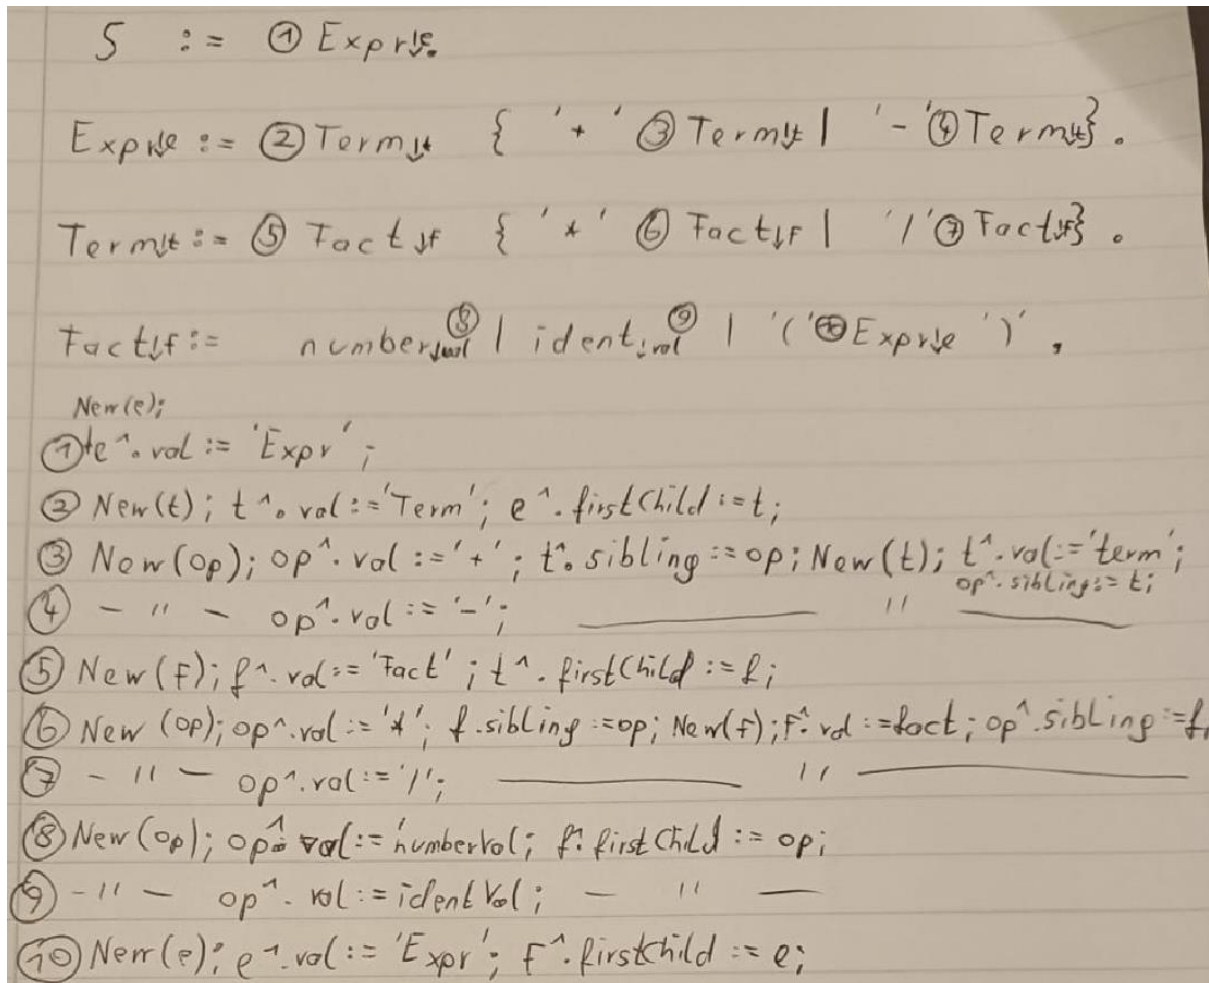 S := ① Expr↓e.
Expr↓e := ② Term↓t { '+' ③ Term↓t | '-' ④ Term↓t }.
Term↓t := ⑤ Fact↓f { '*' ⑥ Fact↓f | '/' ⑦ Fact↓f }.
Fact↓f := number↓val ⑧ | ident↓val ⑨ | '(' ⑩ Expr↓e ')' .
New(e);
① e^.val := 'Expr';
② New(t); t^.val := 'Term'; e^.firstChild := t;
③ New(op); op^.val := '+'; t^.sibling := op; New(t); t^.val := 'term';
op^.sibling := t;
④ - " - op^.val := '-'; — " —
⑤ New(f); f^.val := 'Fact'; t^.firstChild := f;
⑥ New(op); op^.val := '*'; f.sibling := op; New(f); f^.val := fact; op^.sibling := f,
⑦ - " - op^.val := '/'; — " —
⑧ New(op); op^.val := numberVal; f^.firstChild := op;
⑨ - " - op^.val := identVal; - " -
⑩ New(e); e^.val := 'Expr'; f^.firstChild := e;